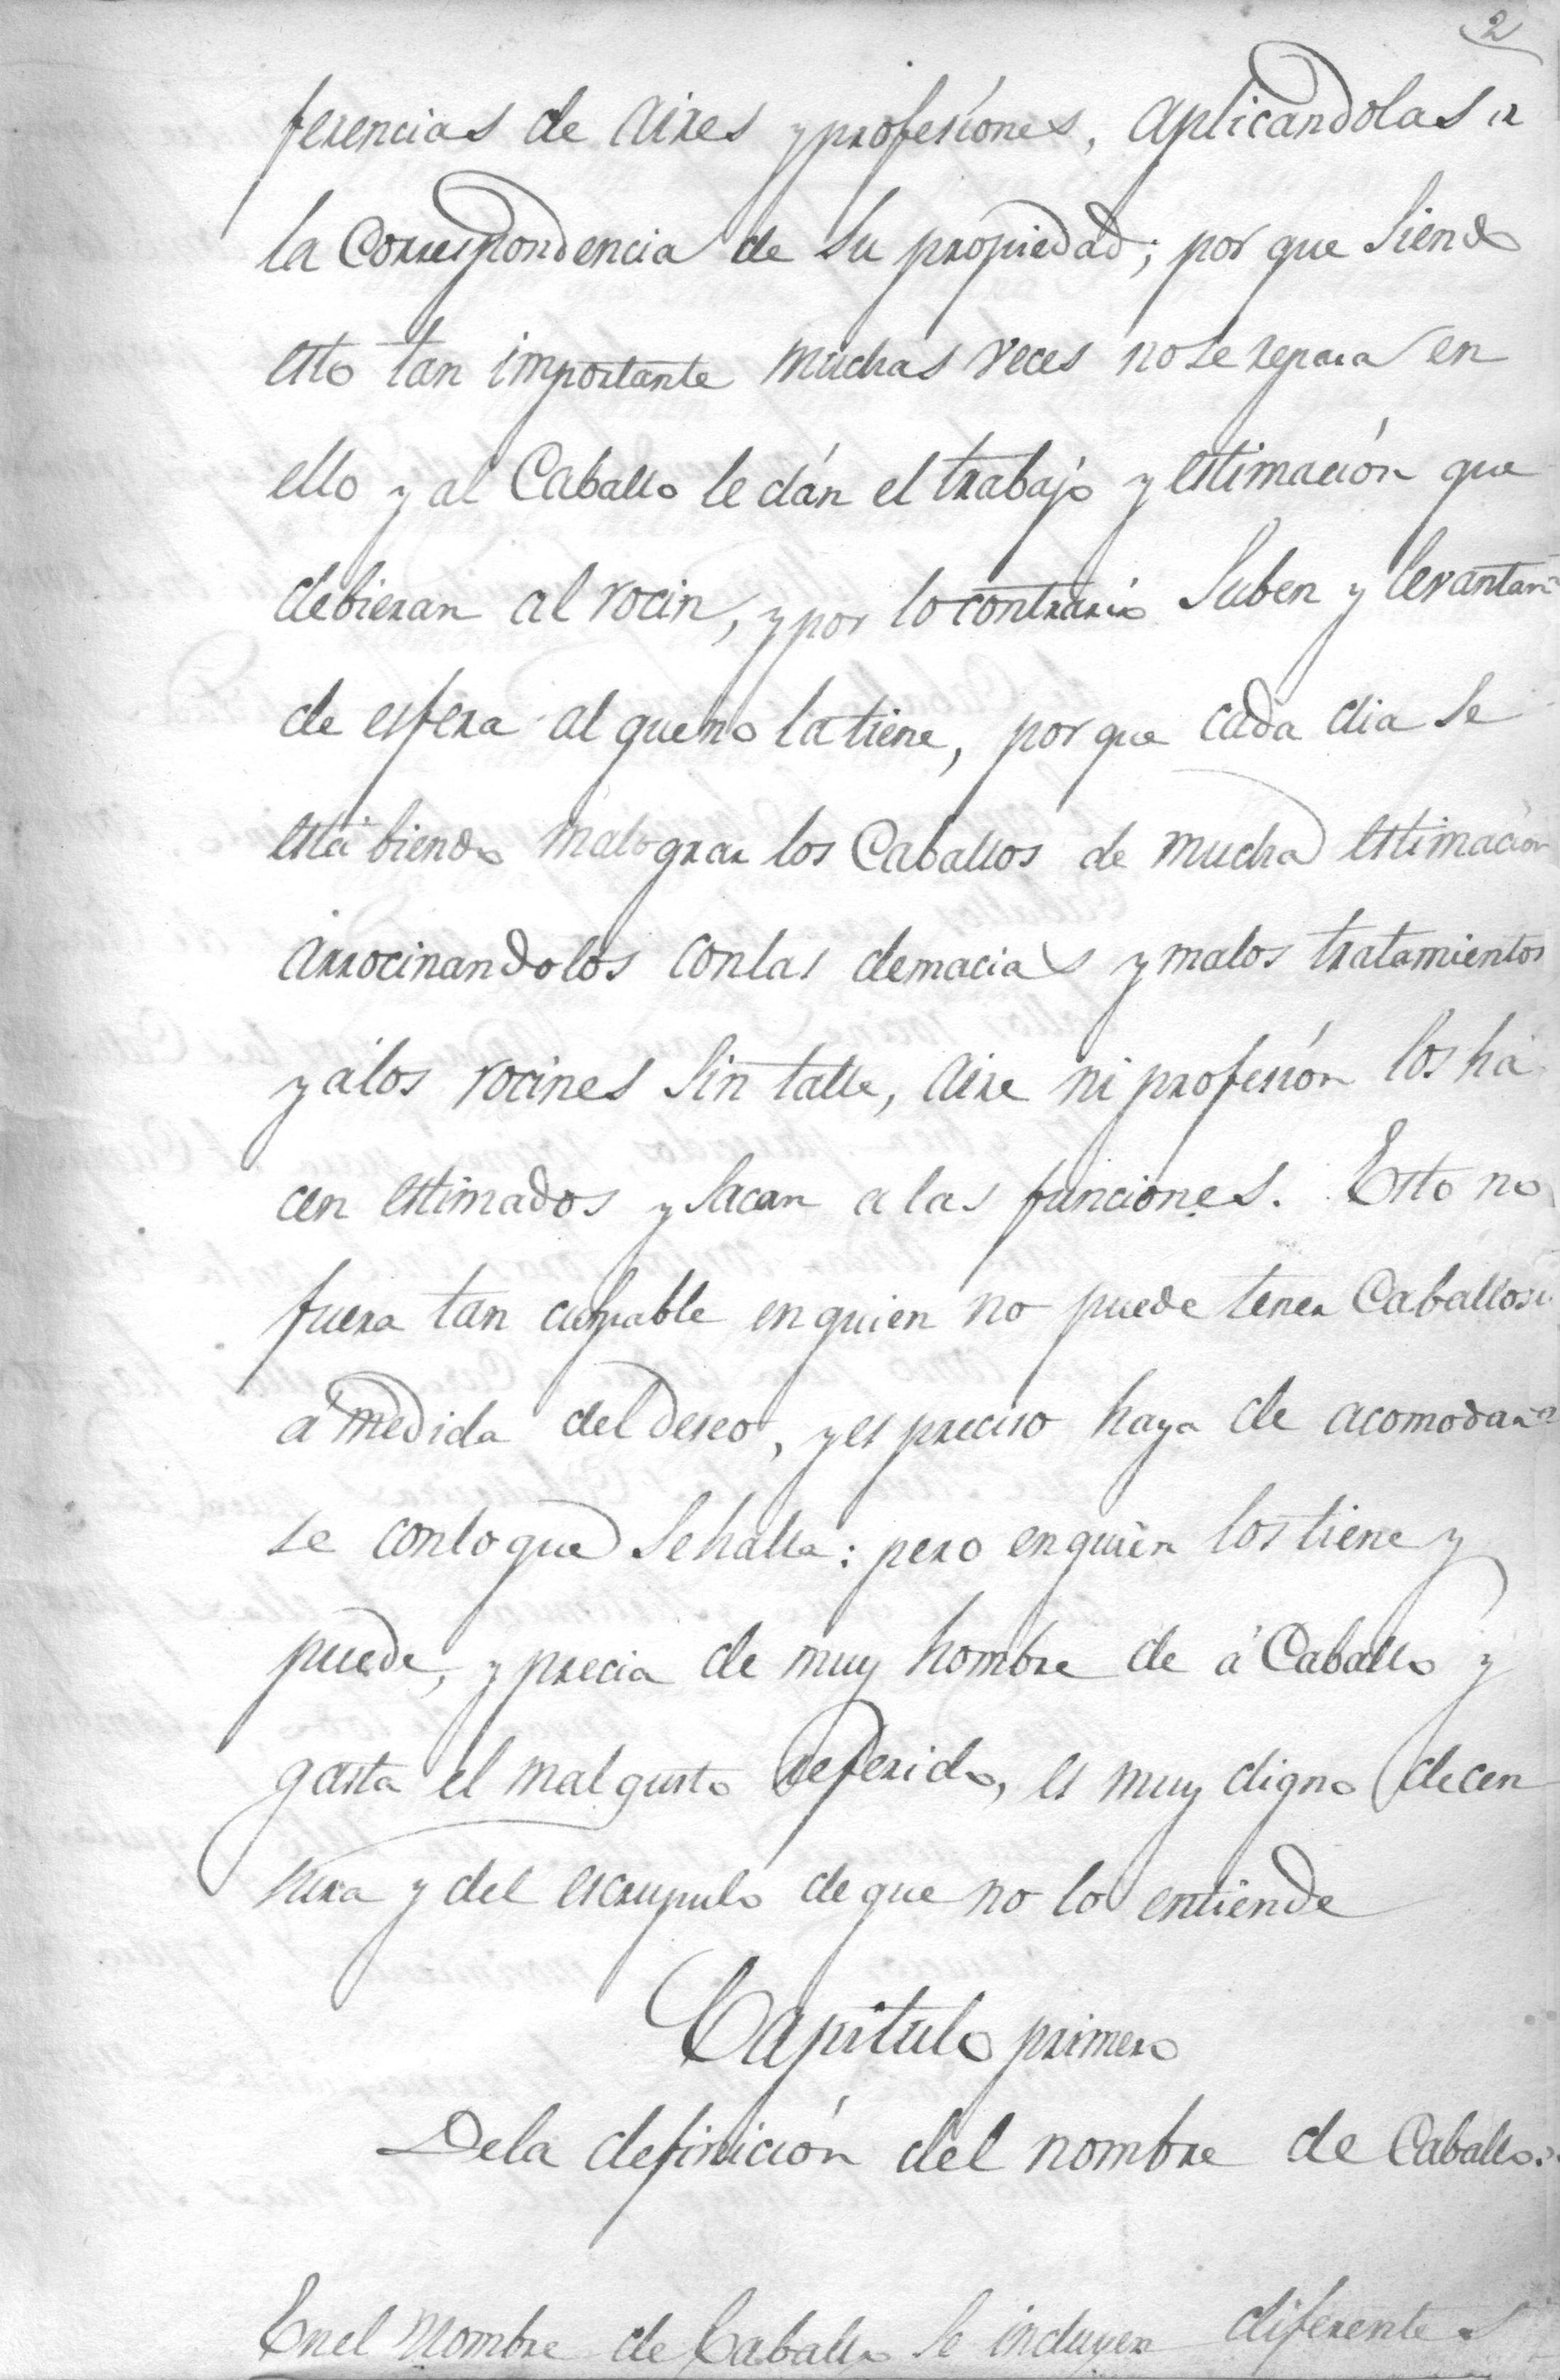 2
ferencias de aires y profesiónes, aplicandolas a
la Correspondencia de su propiedad; por que siendo
esto tan importante muchas veces nose repara en
ello y al Caballo le dán el trabajo y estimación que
debieran al rocin, y por lo contrario suben y levantan
de esfera al queno latiene, por que cada dia se
está biendo malograr los Caballos de mucha estimación
arrocinandolos conlas demacias y malos tratamientos
y álos rocines sin talle, aire ni profesión los há
cen estimados y sacan a las funciones. Esto no
fuera tan culpable enquien no puede tener Caballos
a medida del deseo, y es preciso haya de acomodar
se conloque sehalla: pero enquién los tiene y
puede, y precia de muy hombre de á Caballo y
gasta el mal gusto referido, es muy digno decen
sura y del escrupulo deque no lo entiende
Capitulo primero
Dela definición del nombre de Caballo.
Enel Nombre de Caballo se incluyen diferentes